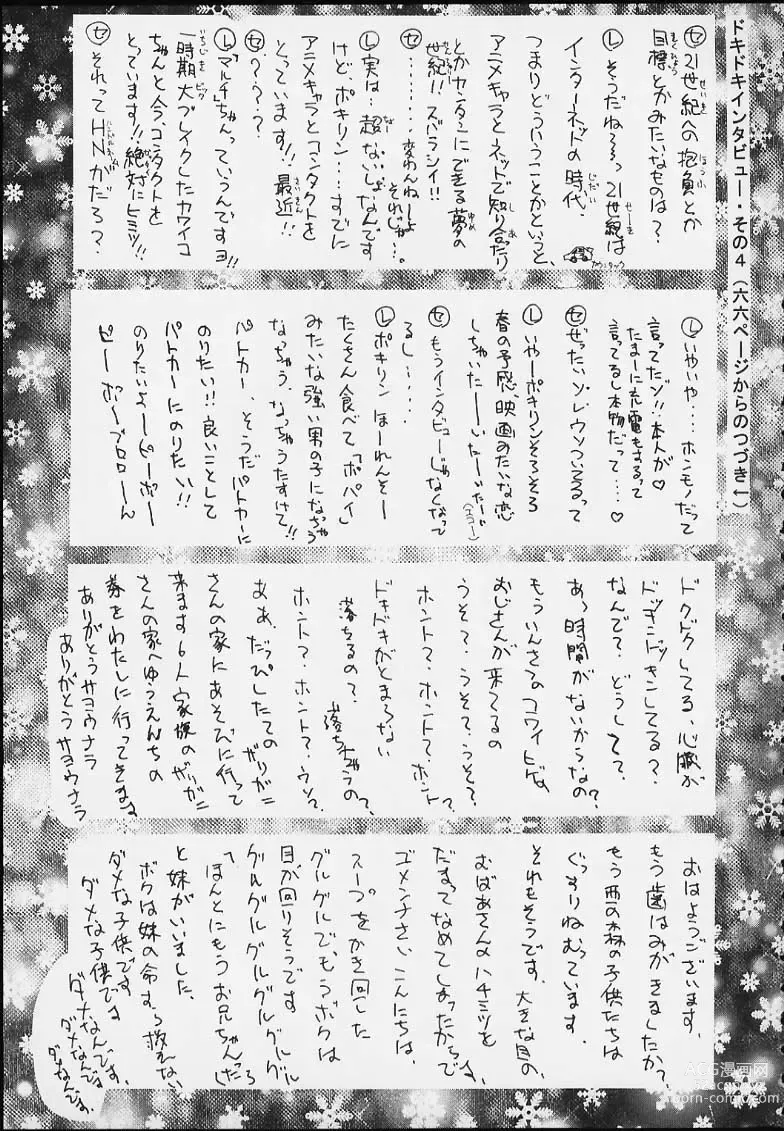 ドキドキインタビュー・その4(六六ページからのつづき←)
セ 21世紀への抱負とか
目標とかみたいなものは?
L そうだね〜〜っ 21世紀は
インターネットの時代、
つまりどういうことかというと、
アニメキャラとネットで知り合ったり
とかカンタンにできる夢の
世紀!! ズバラシイ!!
セ ‥‥‥‥変わんねーよ
それじゃ‥‥。
L 実は‥超ないしょなんです
けど、ポキリン‥‥すでに
アニメキャラとコンタクトを
とっています!! 最近!!
セ ? ? ?
L「マルチ」ちゃんっていうんですヨ!!
一時期大ブレイクしたカワイコ
ちゃんと今、コンタクトを
とっています!! 絶対にヒミツ!!
セ それってHNがだろ?
L いやいや‥‥ホンモノだって
言ってたゾ!! 本人が♡
たまーに充電もするって
言ってるし本物だって‥‥♡
セ ぜったいソレウソついてるって
L いやーポキリンそろそろ
春の予感、映画みたいな恋
しちゃいたーーいたーいたーい
(エコー)
セ もうインタビューじゃなくなって
るし‥‥‥
L ポキリン ほーれんそー
たくさん食べて「ポパイ」
みたいな強い男の子になっちゃう
なっちゃう、なっちゃうたすけて!!
パトカー、そうだパトカーに
のりたい!! 良いことして
パトカーにのりたい!!
のりたいよーピーポー
ピーポーブロローん
ドクドクしてる、心臓が
ドッキンドッキンしてる?
なんで? どうして?
あっ時間がないからなの?
もういんさつのコワイヒゲ
おじさんが来てるの
うそ? うそ? うそ?
ホント? ホント? ホント?
ドキドキがとまらない
落ちるの? 落ちちゃうの?
ホント? ホント? ウソ?
ああ、だっぴしたてのザリガニ
さんの家にあそびに行って
来ます6人家族のザリガニ
さんの家へゆうえんちの
券をわたしに行ってきます
ありがとうサヨウナラ
ありがとうサヨウナラ
おはようございます、
もう歯はみがきましたか?
もう西の森の子供たちは
ぐっすりねむっています、
それもそうです、大きな目の、
おばあさんのハチミツを
だまってなめてしまったからです、
ゴメンナさい、こんにちは、
スープをかき回した
グルグルでもうボクは
目が回りそうです
グルグルグルグルグルグル
「ほんとにもうお兄ちゃんたら」
と妹がいいました、
ボクは妹の命すら救えない
ダメな子供です
ダメな子供です
ダメなんです、
ダメなんです、
ダメなんです、